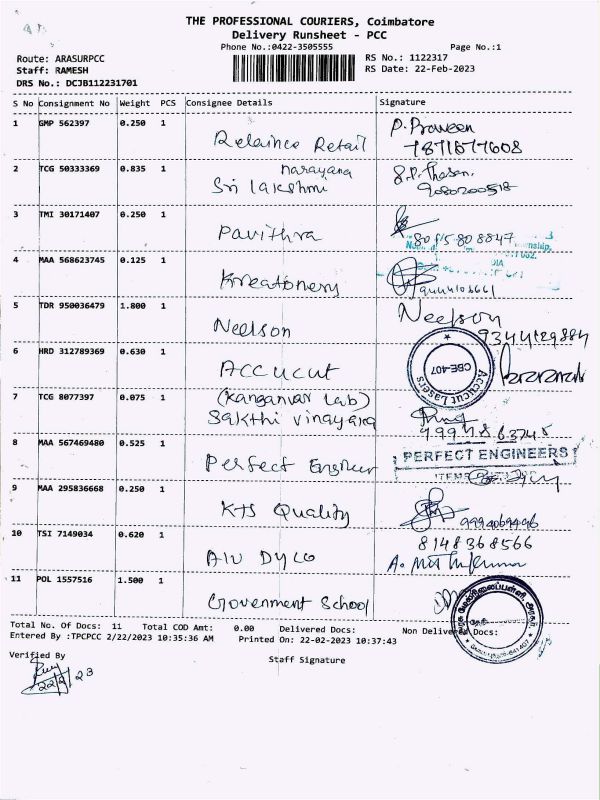 THE PROFESSIONAL COURIERS, Coimbatore
Delivery Runsheet - PCC
Phone No.:0422-3505555 Page No.:1
Route: ARASURPCC RS No.: 1122317
Staff: RAMESH RS Date: 22-Feb-2023
DRS No.: DCJB112231701
S No Consignment No Weight PCS Consignee Details Signature
1 GMP 562397 0.250 1 Relaince Retail P. Praveen
7871877608
2 TCG 50333369 0.835 1 Sri lakshmi narayana
9080200518
3 TMI 30171407 0.250 1 Pavithra
4 MAA 568623745 0.125 1 Kreationery
5 TDR 950036479 1.800 1 Neelson Neelson
9344129884
6 HRD 312789369 0.630 1 Accucut Accucut Lasers CBE-407
7 TCG 8077397 0.075 1 (Kanganvar Lab)
Sakthi vinayaga
8 MAA 567469480 0.525 1 Perfect Engineer PERFECT ENGINEERS
9 MAA 295836668 0.250 1 KTS Quality 9994069496
10 TSI 7149034 0.620 1 Alv Dyco 8148368566
11 POL 1557516 1.500 1 Government School
Total No. Of Docs: 11 Total COD Amt: 0.00 Delivered Docs: Non Delivered Docs:
Entered By :TPCPCC 2/22/2023 10:35:36 AM Printed On: 22-02-2023 10:37:43
Verified By Staff Signature
22/2/23